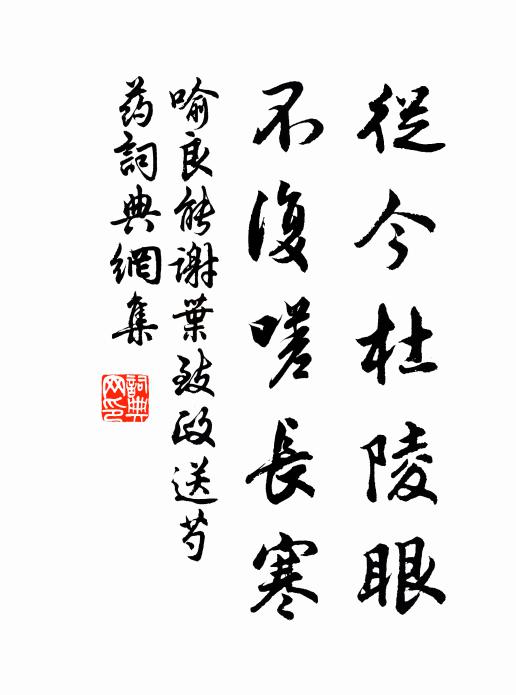 從今杜陵眼
不復嗟長寒
喻良能謝葉致政送芍
药詞典網集
詞典
网印